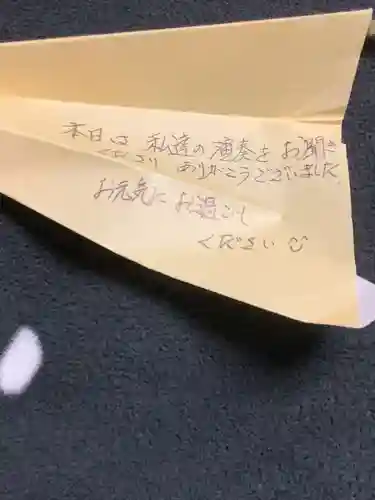 本日は 私達の演奏をお聞き
くださり ありがとうございました
お元気にお過ごし
ください